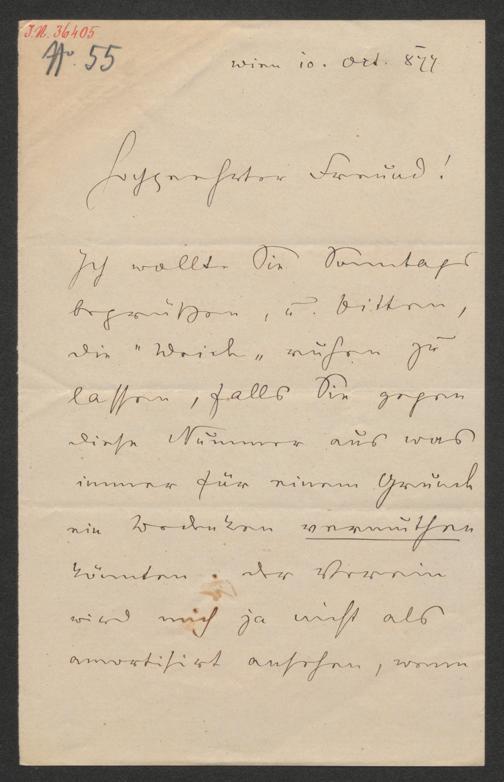 I.N. 36405
No. 55
Wien 10. Oct. 877
Hochgeehrter Freund!
Ich wollte Sie Sonntags
begrüßen, u. bitten,
die "Weich" ruhen zu
lassen, falls Sie gegen
diese Nummer aus was
immer für einem Grunde
ein Bedenken vermuthen
könnten. der Verein
wird mich ja nicht als
amortisirt ansehen, wenn